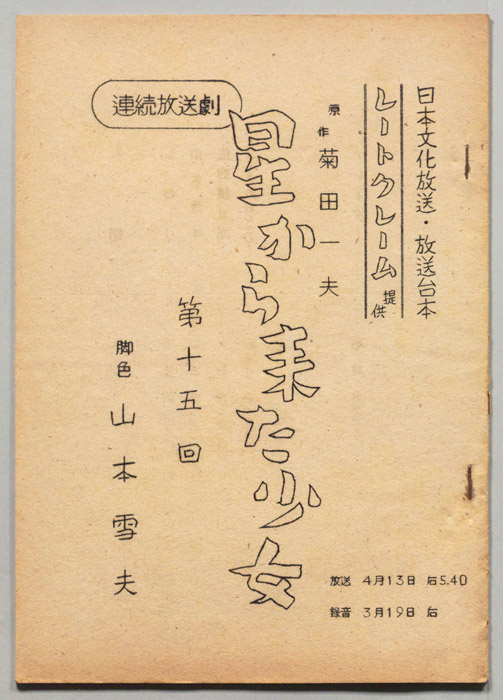 日本文化放送・放送台本
レートクレーム提供
原作 菊田一夫
連続放送劇
星から来た少女
第十五回
脚色 山本雪夫
放送 4月13日 后5.40
録音 3月19日 后